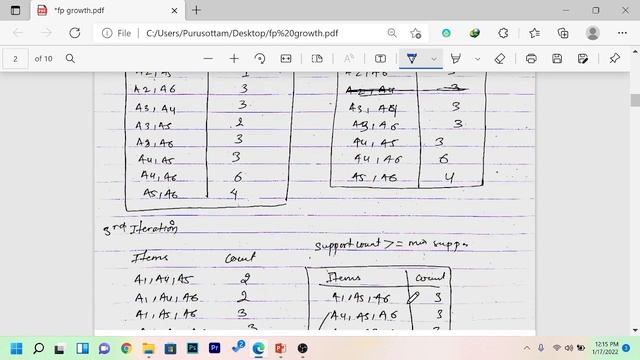 *fp growth.pdf
File | C:/Users/Purusottam/Desktop/fp%20growth.pdf
2 of 10
A2, A6 3
A3, A4 3
A3, A5 2
A3, A6 3
A4, A5 3
A4, A6 6
A5, A6 4
A2, A4 3
A3, A4 3
A3, A6 3
A4, A5 3
A4, A6 6
A5, A6 4
3rd Iteration
Items Count
A1, A4, A5 2
A1, A4, A6 2
A1, A5, A6 3
support count >= min suppo
Items Count
A1, A5, A6 3
A4, A5, A6 3
12:15 PM
1/17/2022